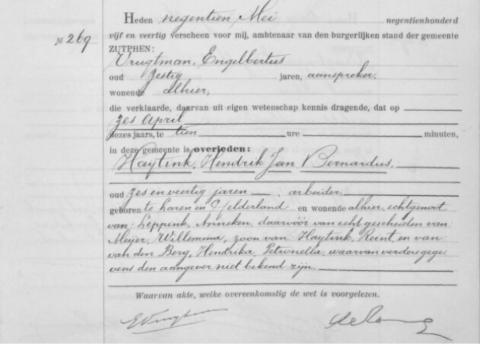 Heden negentien Mei negentienhonderd
№ 269
vijf en veertig verscheen voor mij, ambtenaar van den burgerlijken stand der gemeente
ZUTPHEN:
Vrugtman, Engelbertus
oud zestig jaren, aanspreker,
wonende alhier,
die verklaarde, daarvan uit eigen wetenschap kennis dragende, dat op
zes April
dezes jaars, te tien ure minuten,
in deze gemeente is overleden:
Haytink, Hendrik Jan Bernardus,
oud zes en veertig jaren, arbeider,
geboren te Laren in Gelderland en wonende alhier, echtgenoot
van Leppink, Anneken, daarvóór van echt gescheiden van
Meijer, Willemina, zoon van Haytink, Reint en van
van den Berg, Hendrika Petronella, waarvan verdere gege
vens den aangever niet bekend zijn.
Waarvan akte, welke overeenkomstig de wet is voorgelezen.
EVrugtman